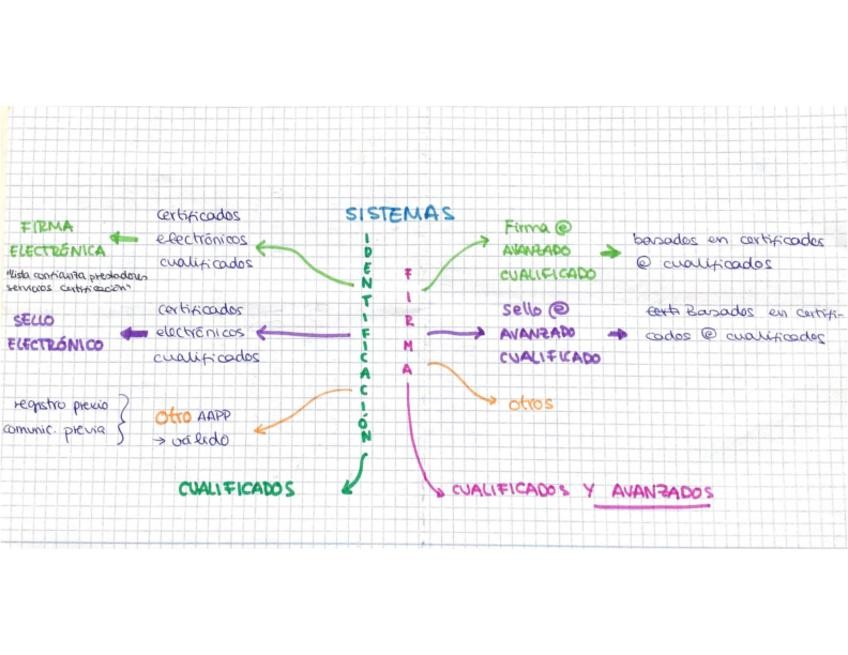 SISTEMAS
IDENTIFICACIÓN
certificados
electrónicos
cualificados
FIRMA
ELECTRÓNICA
"lista confianza prestadores
servicios certificación"
certificados
electrónicos
cualificados
SELLO
ELECTRÓNICO
otro AAPP
→ válido
registro previo
comunic. previa
CUALIFICADOS
FIRMA
Firma @
AVANZADO
CUALIFICADO
basados en certificados
@ cualificados
Sello @
AVANZADO
CUALIFICADO
certi Basados en certifi-
cados @ cualificados
otros
CUALIFICADOS Y AVANZADOS